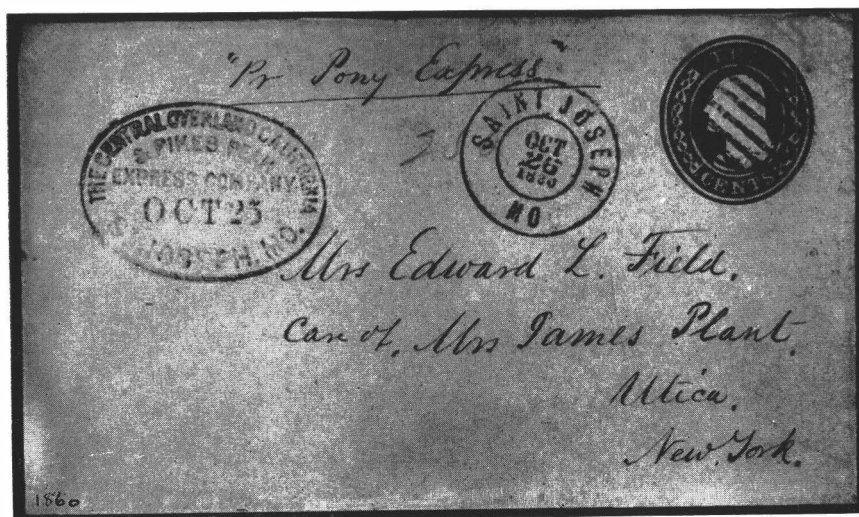 "Pr Pony Express"
THE CENTRAL OVERLAND CALIFORNIA
& PIKES PEAK
EXPRESS COMPANY
OCT 25
ST JOSEPH, MO.
30
SAINT JOSEPH
OCT
26
1860
MO
CENTS
Mrs Edward L. Field.
Care of. Mrs James Plant.
Utica.
New York.
1860